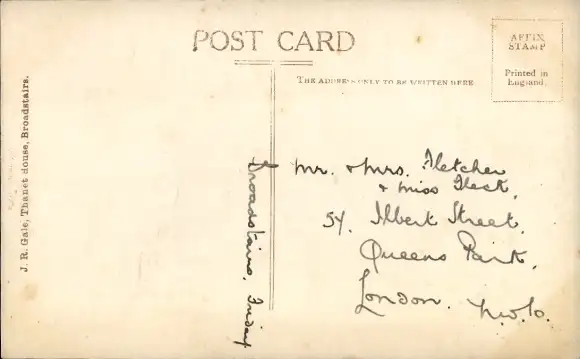 POST CARD
THE ADDRESS ONLY TO BE WRITTEN HERE
AFFIX
STAMP
Printed in
England.
J. R. Gale, Thanet House, Broadstairs.
Broadstairs, Friday
Mr. & Mrs. Fletcher
& Miss
54. Ilbert Street,
Queens Park,
London. N.W.6.